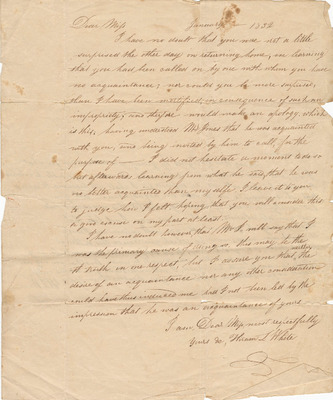 Dear Miss January 1832
I have no doubt that you were not a little
surprised the other day on returning home, on learning
that you had been called on by me with whom you have
no acquaintance; nor could you be more surprised,
than I have been mortified in consequence of such an
impropriety; and therefore would make an apology, which
is this, having understood Mr Jones that he was acquainted
with you, and being invited by him to call, for the
purpose of — I did not hesitate a moment to do so
but afterwards learning from what he said, that he was
no better acquainted than myself. I leave it to you
to judge how I felt hoping that you will consider this
a good excuse on my part at least.
I have no doubt however, that Mr will say that I
was the primary this may be the
truth in one respect, but I assure you that, the
desire of an acquaintance nor any other consideration
could have thus induced me had I not been led by the
impression that he was an acquaintance of yours
I am Dear Miss most respectfully
Yours &c. Hiram L White